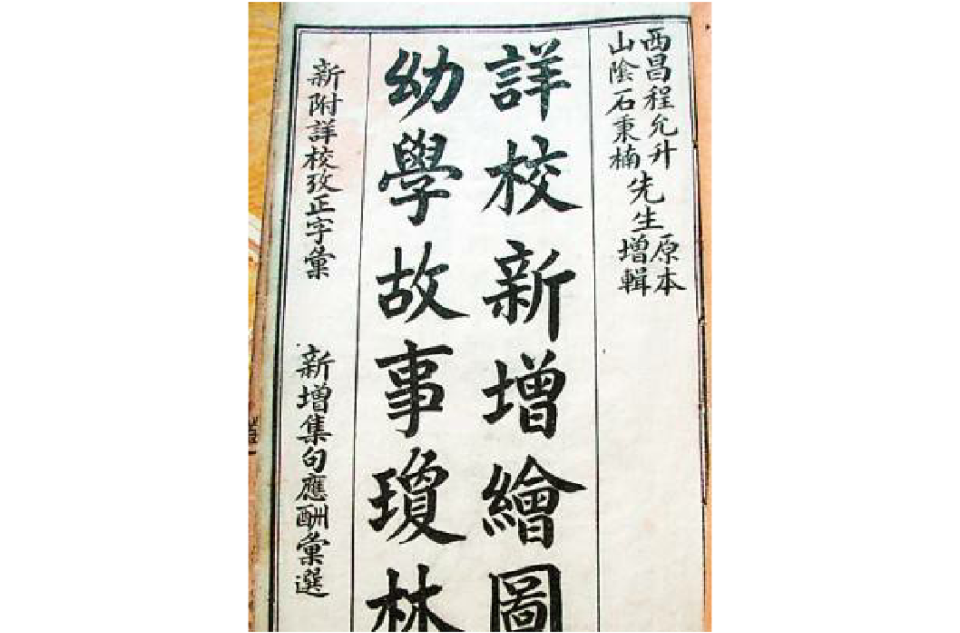 西昌程允升
山陰石秉楠
先生
原本
增輯
詳校新增繪圖
幼學故事瓊林
新附詳校攷正字彙
新增集句應酬彙選